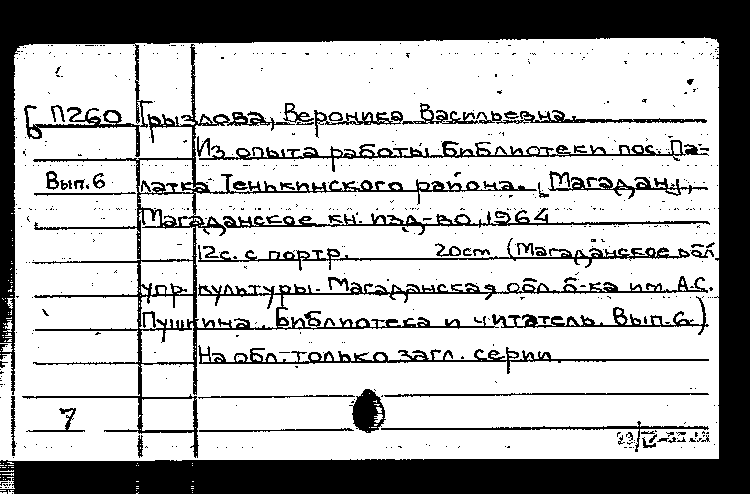 Б П260 Грызлова, Вероника Васильевна.
Из опыта работы библиотеки пос. Па-
Вып. 6 латка Тенькинского района. [Магадан],
Магаданское кн. изд-во, 1964
12с. с портр. 20cm (Магаданское обл.
упр. культуры. Магаданская обл. б-ка им. А.С.
Пушкина. Библиотека и читатель. Вып. 6.)
На обл. только загл. серии.
7